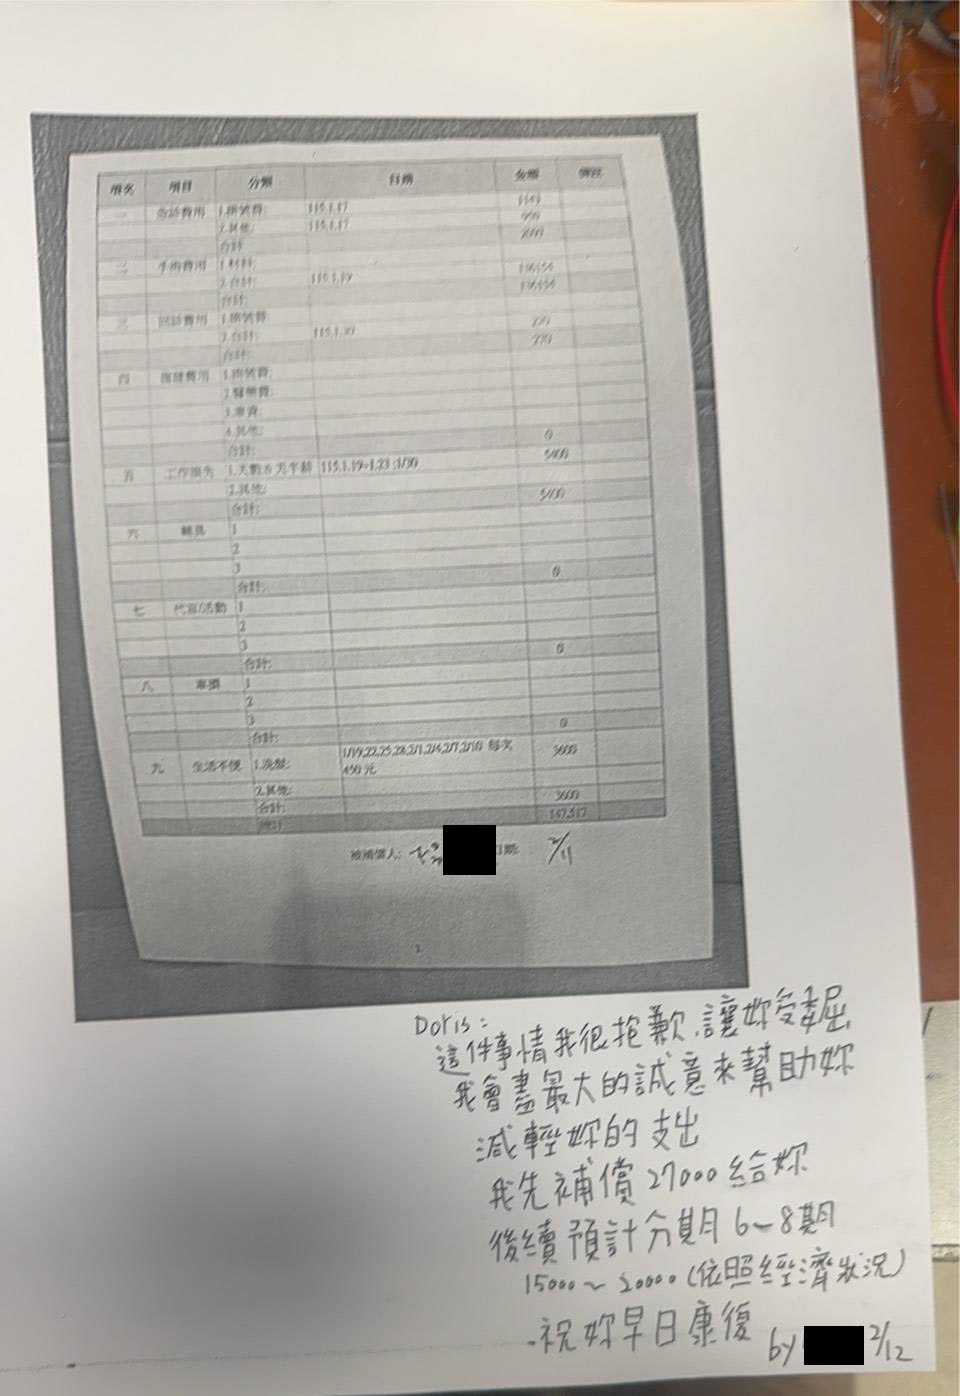 項次 項目 分類 日期 金額 備註
一 急診費用 1.掛號費: 115.1.17
2.其他: 115.1.17
合計
二 手術費用 1.材料:
2.合計: 115.1.19
合計:
三 回診費用 1.掛號費
2.合計: 115.1.30
合計:
四 復健費用 1.掛號費
2.醫藥費:
3.車資:
4.其他:
合計: 0
五 工作損失 1.天數&天半薪 115.1.19~1.23 ;1/30 5400
2.其他:
合計: 5400
六 輔具 1
2
3
合計: 0
七 1
2
3
合計: 0
八 車損 1
2
3
合計: 0
九 生活不便 1.洗髮: 1/19,22,25,28,2/1,2/4,2/7,2/10 每次 3600
450元
2.其他:
合計: 3600
總計 147,517
被補償人: 日期: 2/11
Doris:
這件事情我很抱歉,讓妳受委屈,
我會盡最大的誠意來幫助妳
減輕妳的支出
我先補償27000給妳
後續預計分期6~8期
15000~20000(依照經濟狀況)
祝妳早日康復
by 2/12